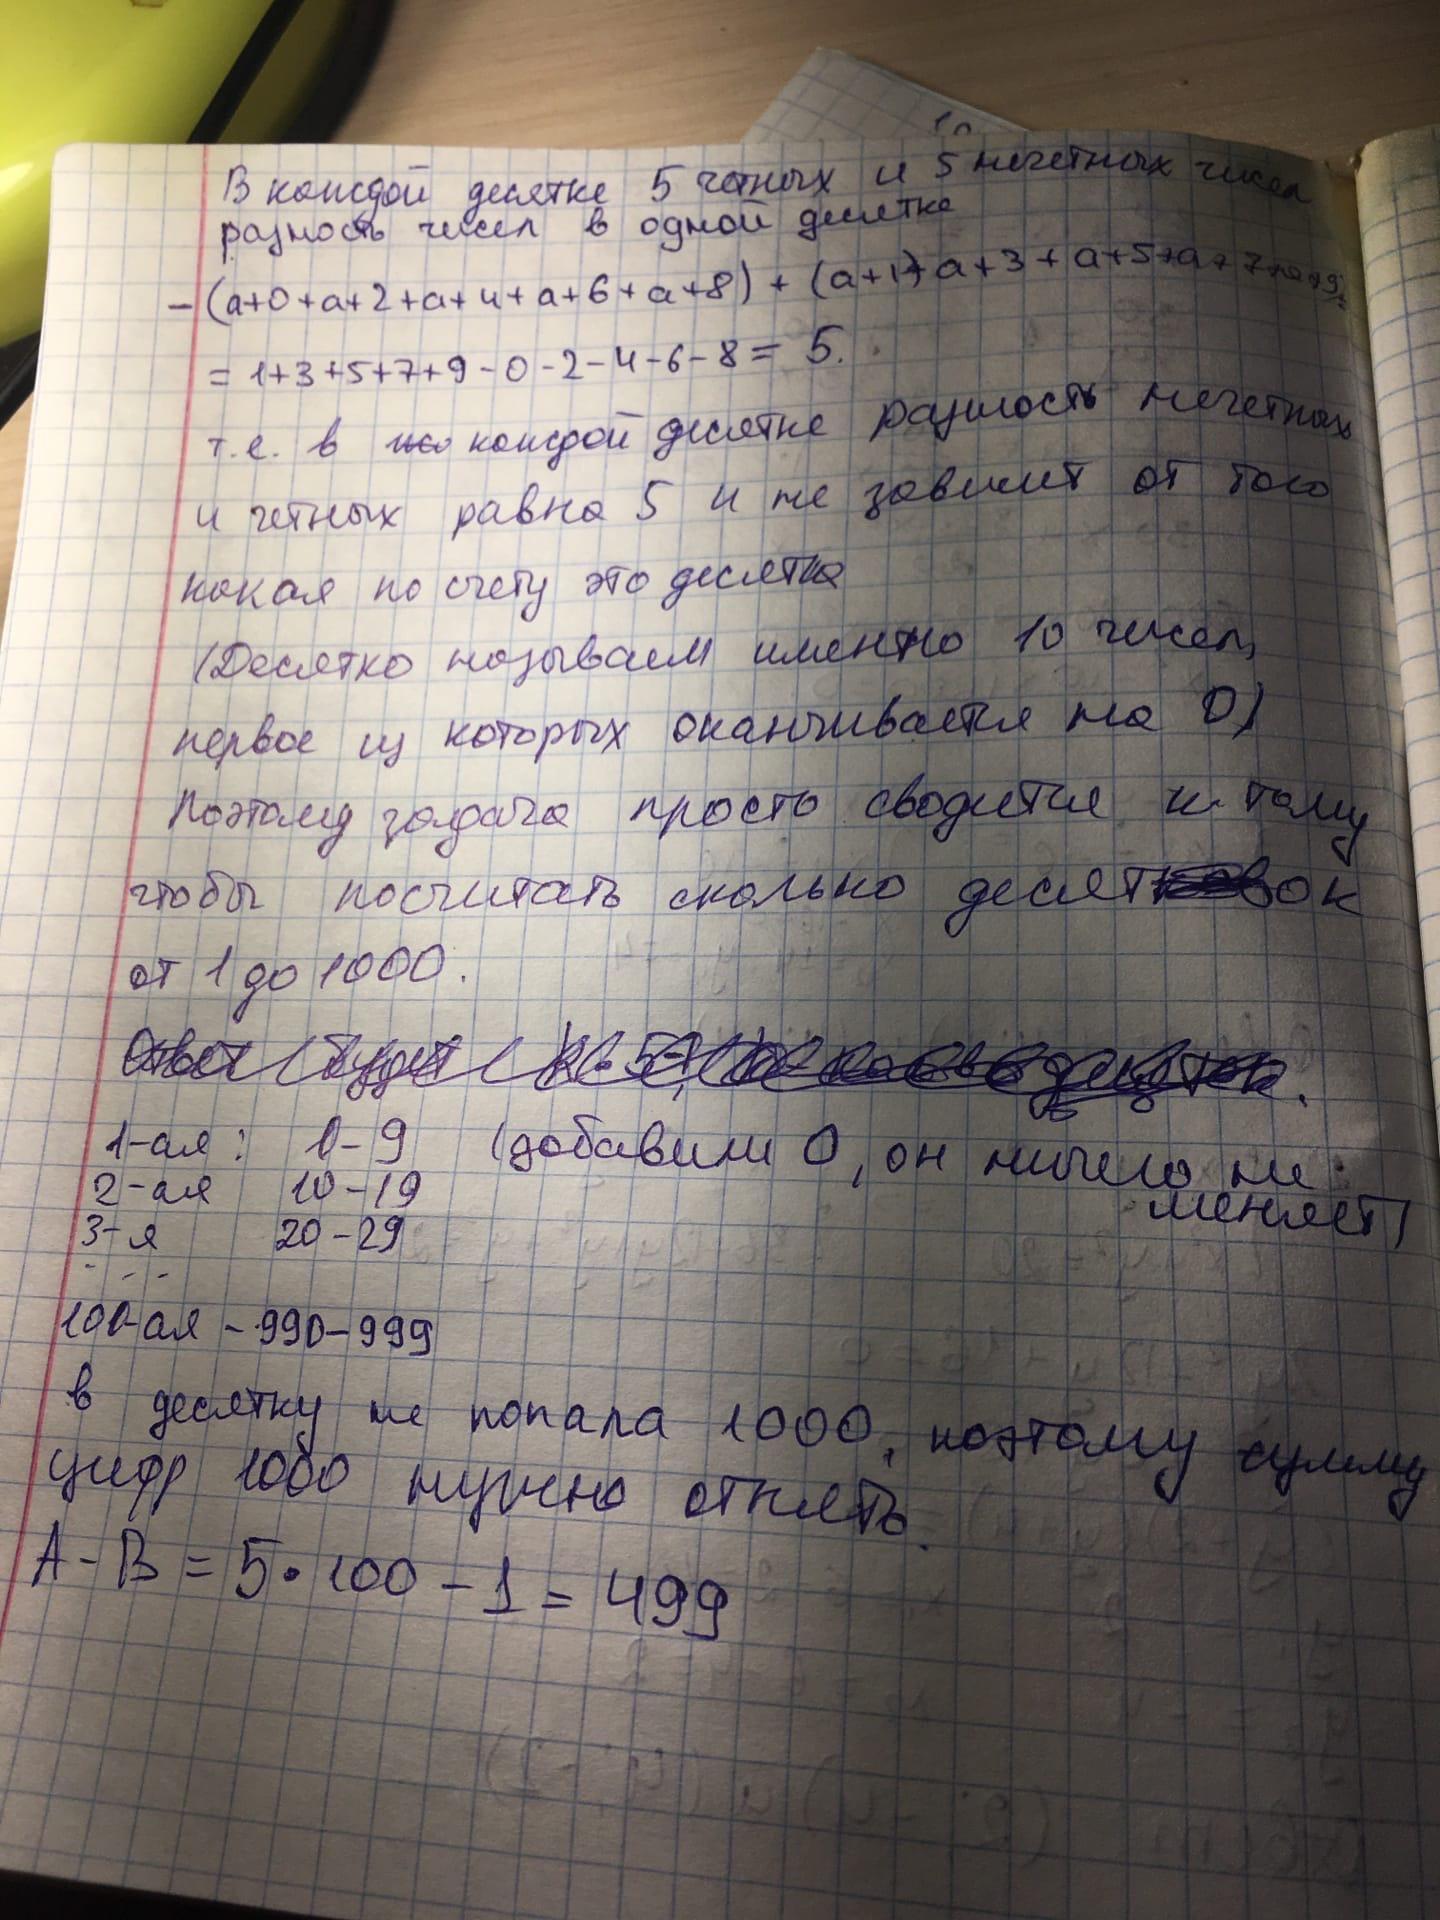 В каждой десятке 5 четных и 5 нечетных чисел
разность чисел в одной десятке
-(а+0+а+2+а+4+а+6+а+8)+(а+1+а+3+а+5+а+7+а+9)=
= 1+3+5+7+9-0-2-4-6-8= 5.
т.е. в каждой десятке разность нечетных
и четных равна 5 и не зависит от того
какая по счету это десятка
(Десятко называем именно 10 чисел,
первое из которых оканчивается на 0)
Поэтому задача просто сводится к тому
чтобы посчитать сколько десяток
от 1 до 1000.
1-ая: 0-9 (добавили 0, он ничего не
меняет)
2-ая 10-19
3-я 20-29
...
100-ая - 990-999
в десятку не попала 1000, поэтому сумму
цифр 1000 нужно отнять.
А-В = 5·100-1= 499